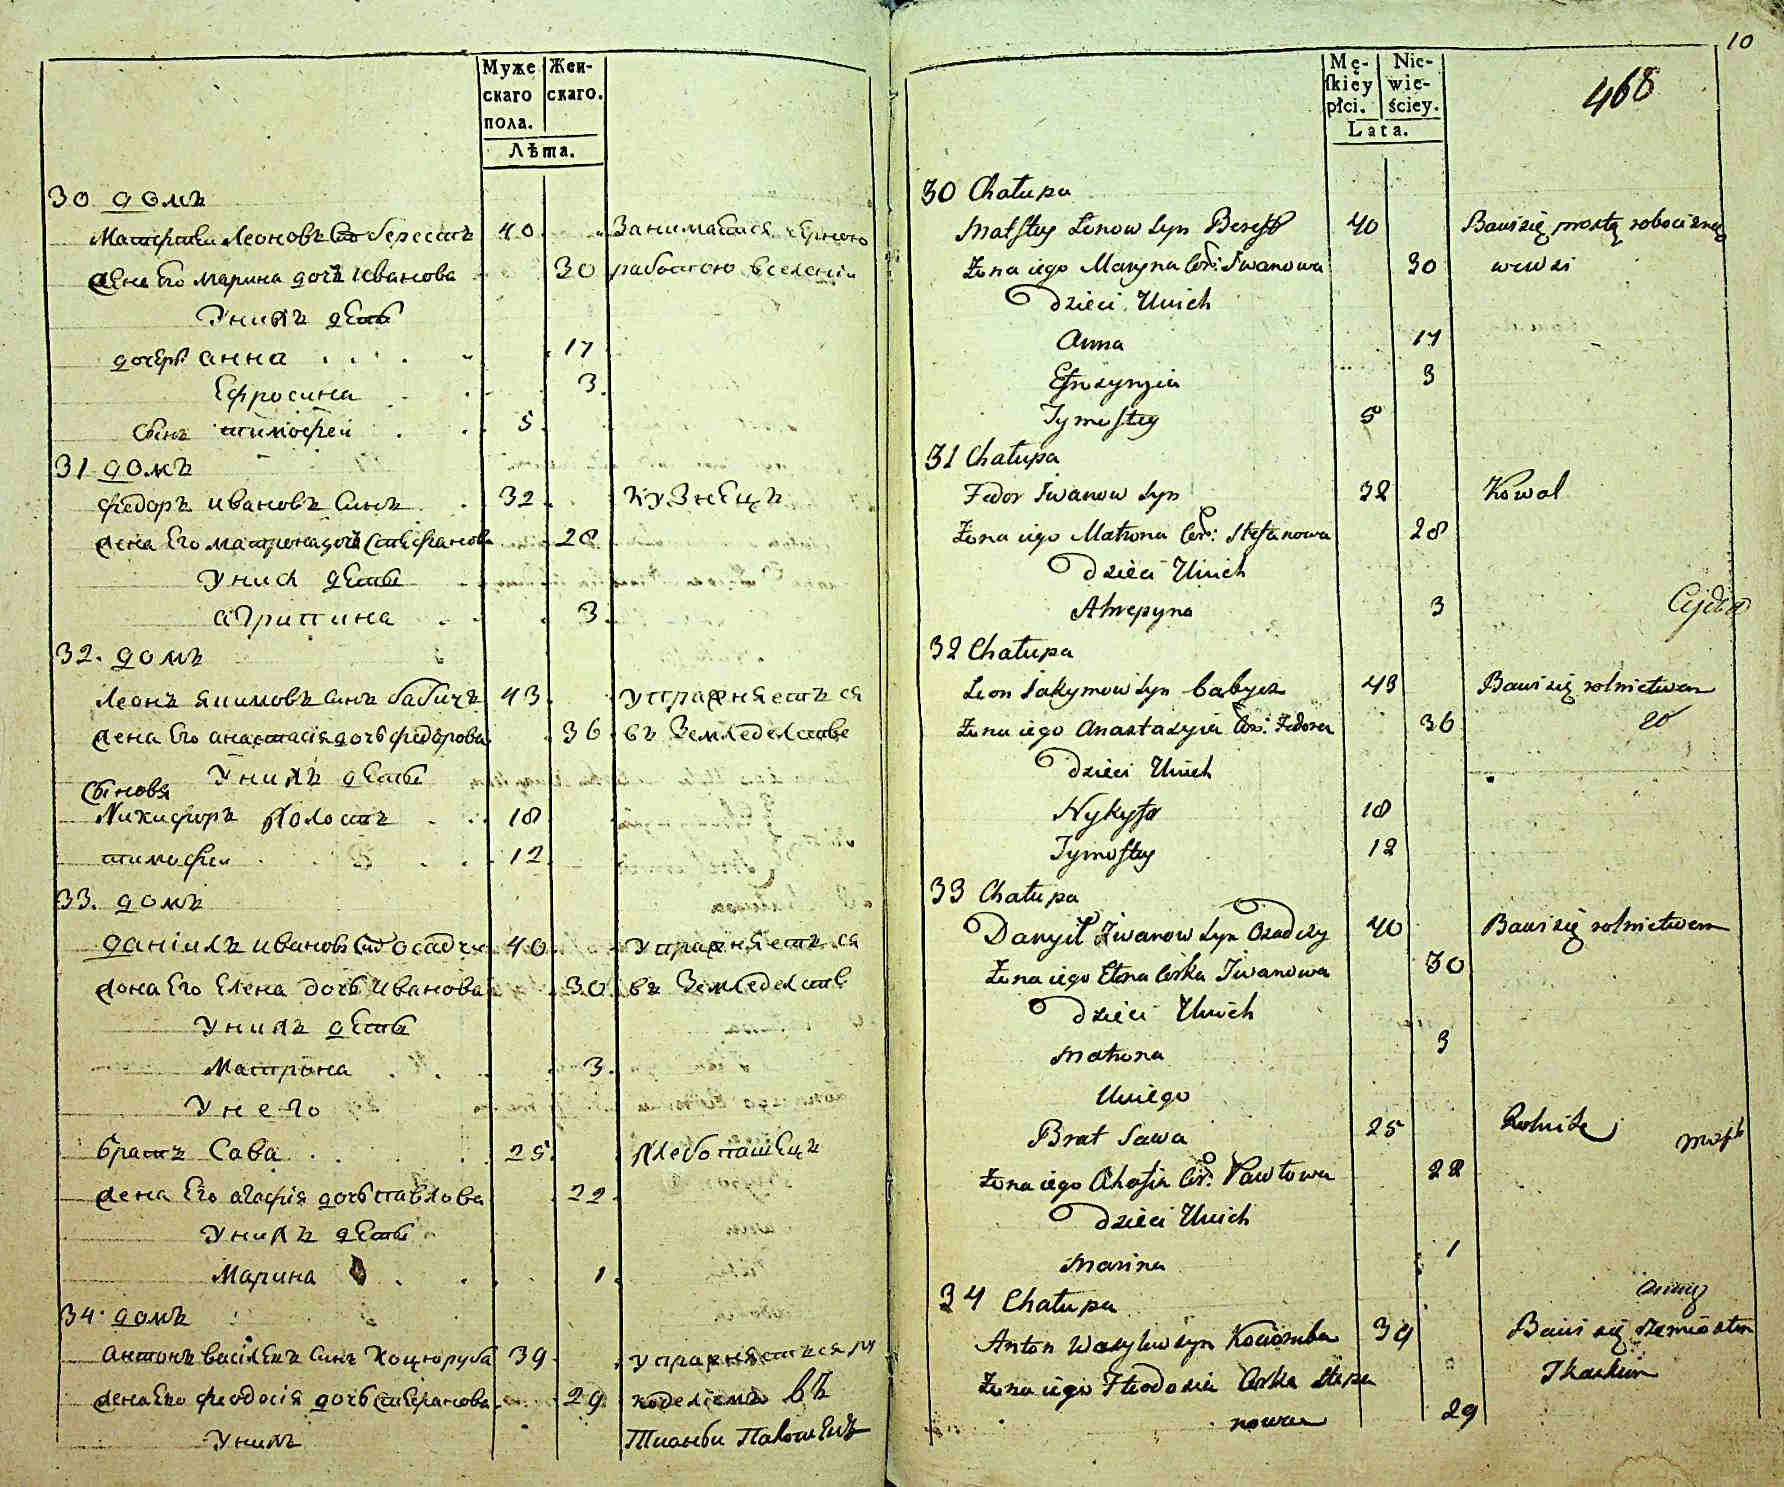 Муже Жен-
скаго скаго.
пола.
Лѣта.
30 домъ
Матфѣи Леоновъ Сынъ берестъ 40 Занимаится чорною
жена Его марина дочъ иванова 30 работою вселении
Унихъ дети
дочерь анна 17
Ефросина 3
Сынъ тимофеи 5
31 домъ
федоръ ивановъ Синъ 32 Кузнецъ
жена Его матрона дочъ Стефанова 28
Униси дети
агрипина 3
32. домъ
Леонъ якимовъ Синъ бабичъ 43 упражняетъся
жена Его анастасія дочъ федорова 36 въ Земледелстве
Унихъ дети
Сыновя
Никифоръ Холостъ 18
тимофеи 12
33. домъ
даніилъ ивановъ Сынъ осадчи 40 упражняетъся
жона Его Елена дочъ иванова 30 въ Земледелстве
Унихъ дети
Матрона 3
Унего
братъ Сава 25 Хлебопашецъ
жена Его агафія дочъ павлова 22
Унихъ дети
Марина 1
34. домъ
антонъ васілевъ Синъ Коцюруба 39 упражняетъся ру
жена Его феодосія дочъ Стефанова 29 коделіемъ въ
Унихъ
10
Mę- Nie-
ſkiey wie-
płci. ściey.
Lata.
468
30 Chałupa
Matſtey Lenow Syn Berest 40 Bawi się prostą robocizną
Żona iego Maryna Cór: Iwanowa 30 wewsi
Dzieci Unich
Anna 17
Efrozynyia 3
Tymoſtey 5
31 Chałupa
Fedor Iwanow Syn 32 Kowal
Żona iego Matrona Cór: Stefanowa 28
Dzieci Unich
Ahrepyna 3
32 Chałupa
Leon Jakymow Syn Babycz 43 Bawi się rolnictwem
Żona iego Anastazyia Cór: Fedora 36
Dzieci Unich
Nykyfor 18
Tymoſtey 12
33 Chałupa
Danyił Iwanow Syn Osadczy 40 Bawi się rolnictwem
Żona iego Elena Córka Iwanowa 30
Dzieci Unich
Matrona 3
Uniego
Brat Sawa 25 Rolnik
Żona iego Ahafia Cór: Pawłowa 22
Dzieci Unich
Marina 1
34 Chałupa
Anton Wasylew Syn Kociomba 39 Bawi się rzemiosłem
Żona iego Fteodosia Córka Stepa Tkackim
nowa 29